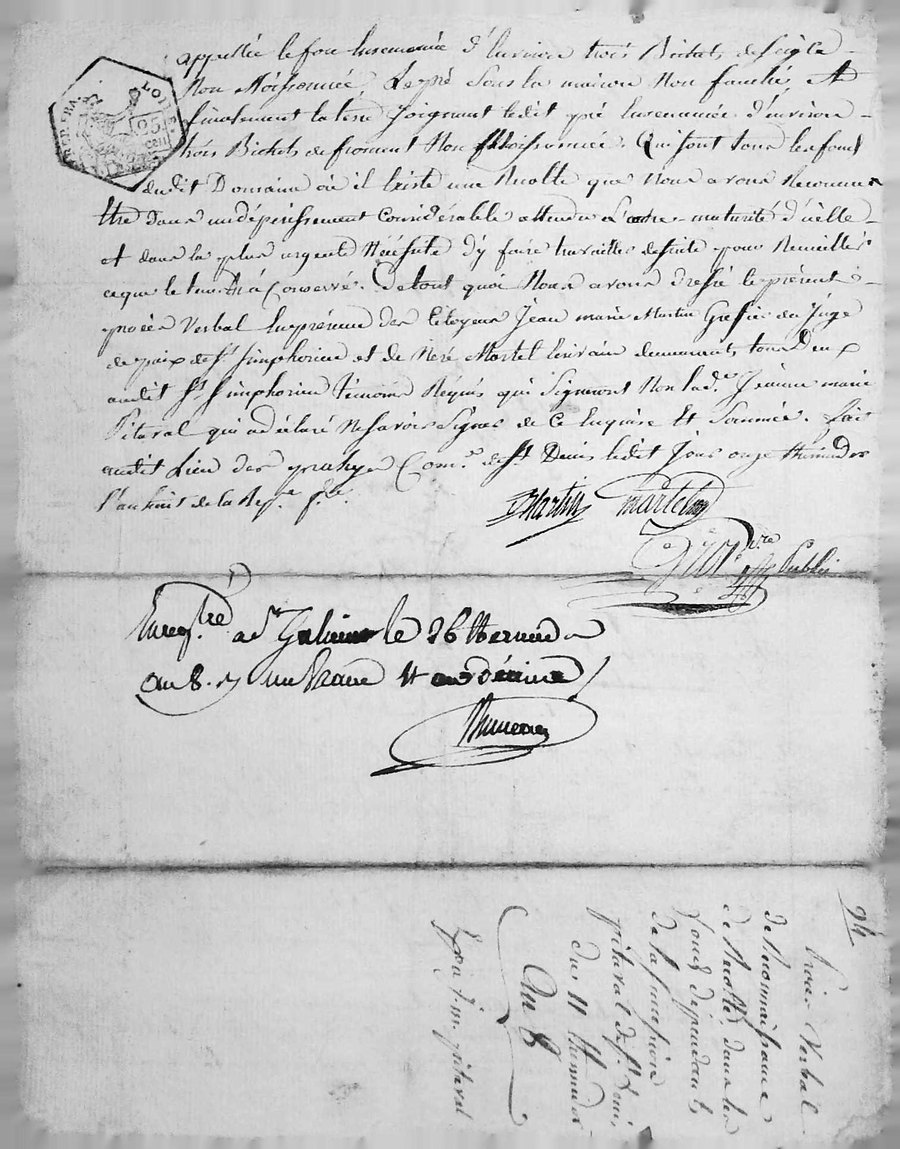 appellée le fou Ensemencée d'Environ trois Bichets de seigle
Non Moissonnée, Le pré sous la maison Non fauché, Et
finalement la terre Joignant ledit pré Ensemencée d'environ
trois Bichets de froment Non Moissonnée. Qui sont tous les fonds
dudit Domaine où il Existe une Recolte que Nous avons Reconnu
Etre dans un dépérissement considérable attendu L'outre-maturité d'icelle
et dans la plus urgente Nécessité d'y faire travailler de suite pour Recueillir
ce que le tems a Conservé. De tout quoi Nous avons dressé le présent
procès Verbal En présence des Citoyens Jean marie Martin Greffier du Juge
de paix de St. Simphorien et de Martel Ecrivain demeurants tous deux
audit St. Simphorien témoins Requis qui Signeront Non lade. Jeanne marie
Pitaval qui a déclaré Ne savoir Signer de Ce Enquise Et Sommée. Fait
audit Lieu des Come. de St. Denis ledit Jour onze thermidor
L'an huit de la Repe. fse.
Martin Martel
Nre Public
Enregtré a St le 26 thermidor
an 8. R un franc et un décime
24
Procès Verbal
de Reconnaissance
de Recolte dans les
fonds dépendants
de la succession
pitaval de St. Denis
du 11 thermidor
An 8
Exp. pitaval